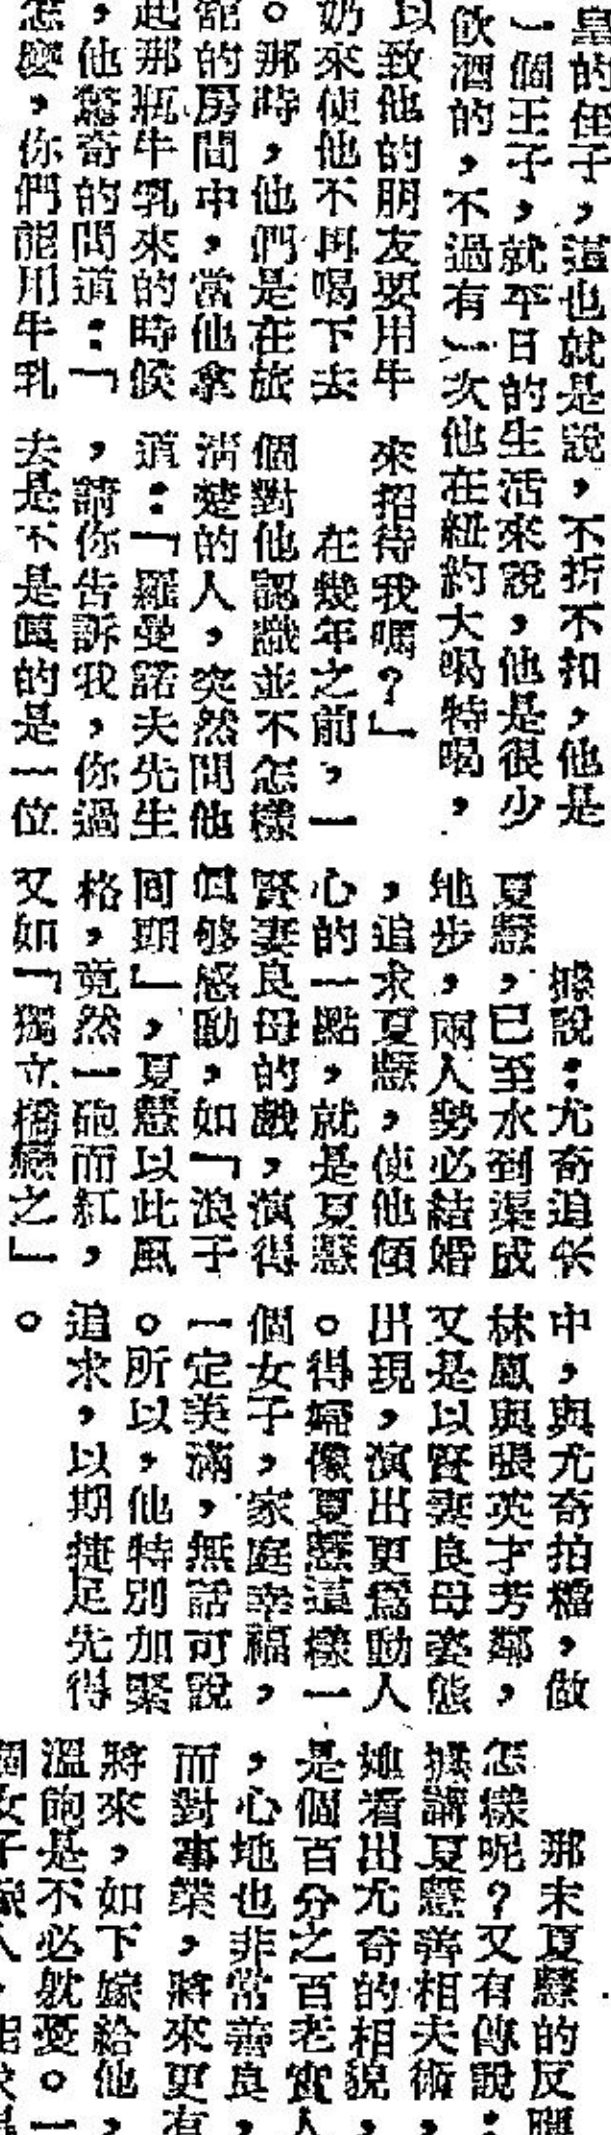 皇的侄子，這也就是說，不折不扣，他是
一個王子，就平日的生活來說，他是很少
飲酒的，不過有一次他在紐約大喝特喝，
以致他的朋友要用牛
奶來使他不再喝下去
。那時，他們是在旅
館的房間中，當他拿
起那瓶牛乳來的時候
，他驚奇的問道：「
怎麼，你們能用牛乳
來招待我嗎？」
在幾年之前，一
個對他認識並不怎樣
清楚的人，突然問他
道：「羅曼諾夫先生
，請你告訴我，你過
去是不是眞的是一位
據說：尤奇追求
夏慧，已至水到渠成
地步，兩人勢必結婚
，追求夏慧，使他傾
心的一點，就是夏慧
賢妻良母的戲，演得
個够感動，如「浪子
回頭」，夏慧以此風
格，竟然一砲而紅，
又如「獨立橋戀之」
中，與尤奇拍檔，做
林鳳與張英才芳鄰，
又是以賢妻良母姿態
出現，演出更爲動人
。得婦像夏慧這樣一
個女子，家庭幸福，
一定美滿，無話可說
。所以，他特別加緊
追求，以期捷足先得
。
那末夏慧的反應
怎樣呢？又有傳說：
據講夏慧善相夫術，
她看出尤奇的相貌，
是個百分之百老實人
，心地也非常善良，
而對事業，將來更有
將來，如下嫁給他，
溫飽是不必躭憂。一
個女子嫁人，